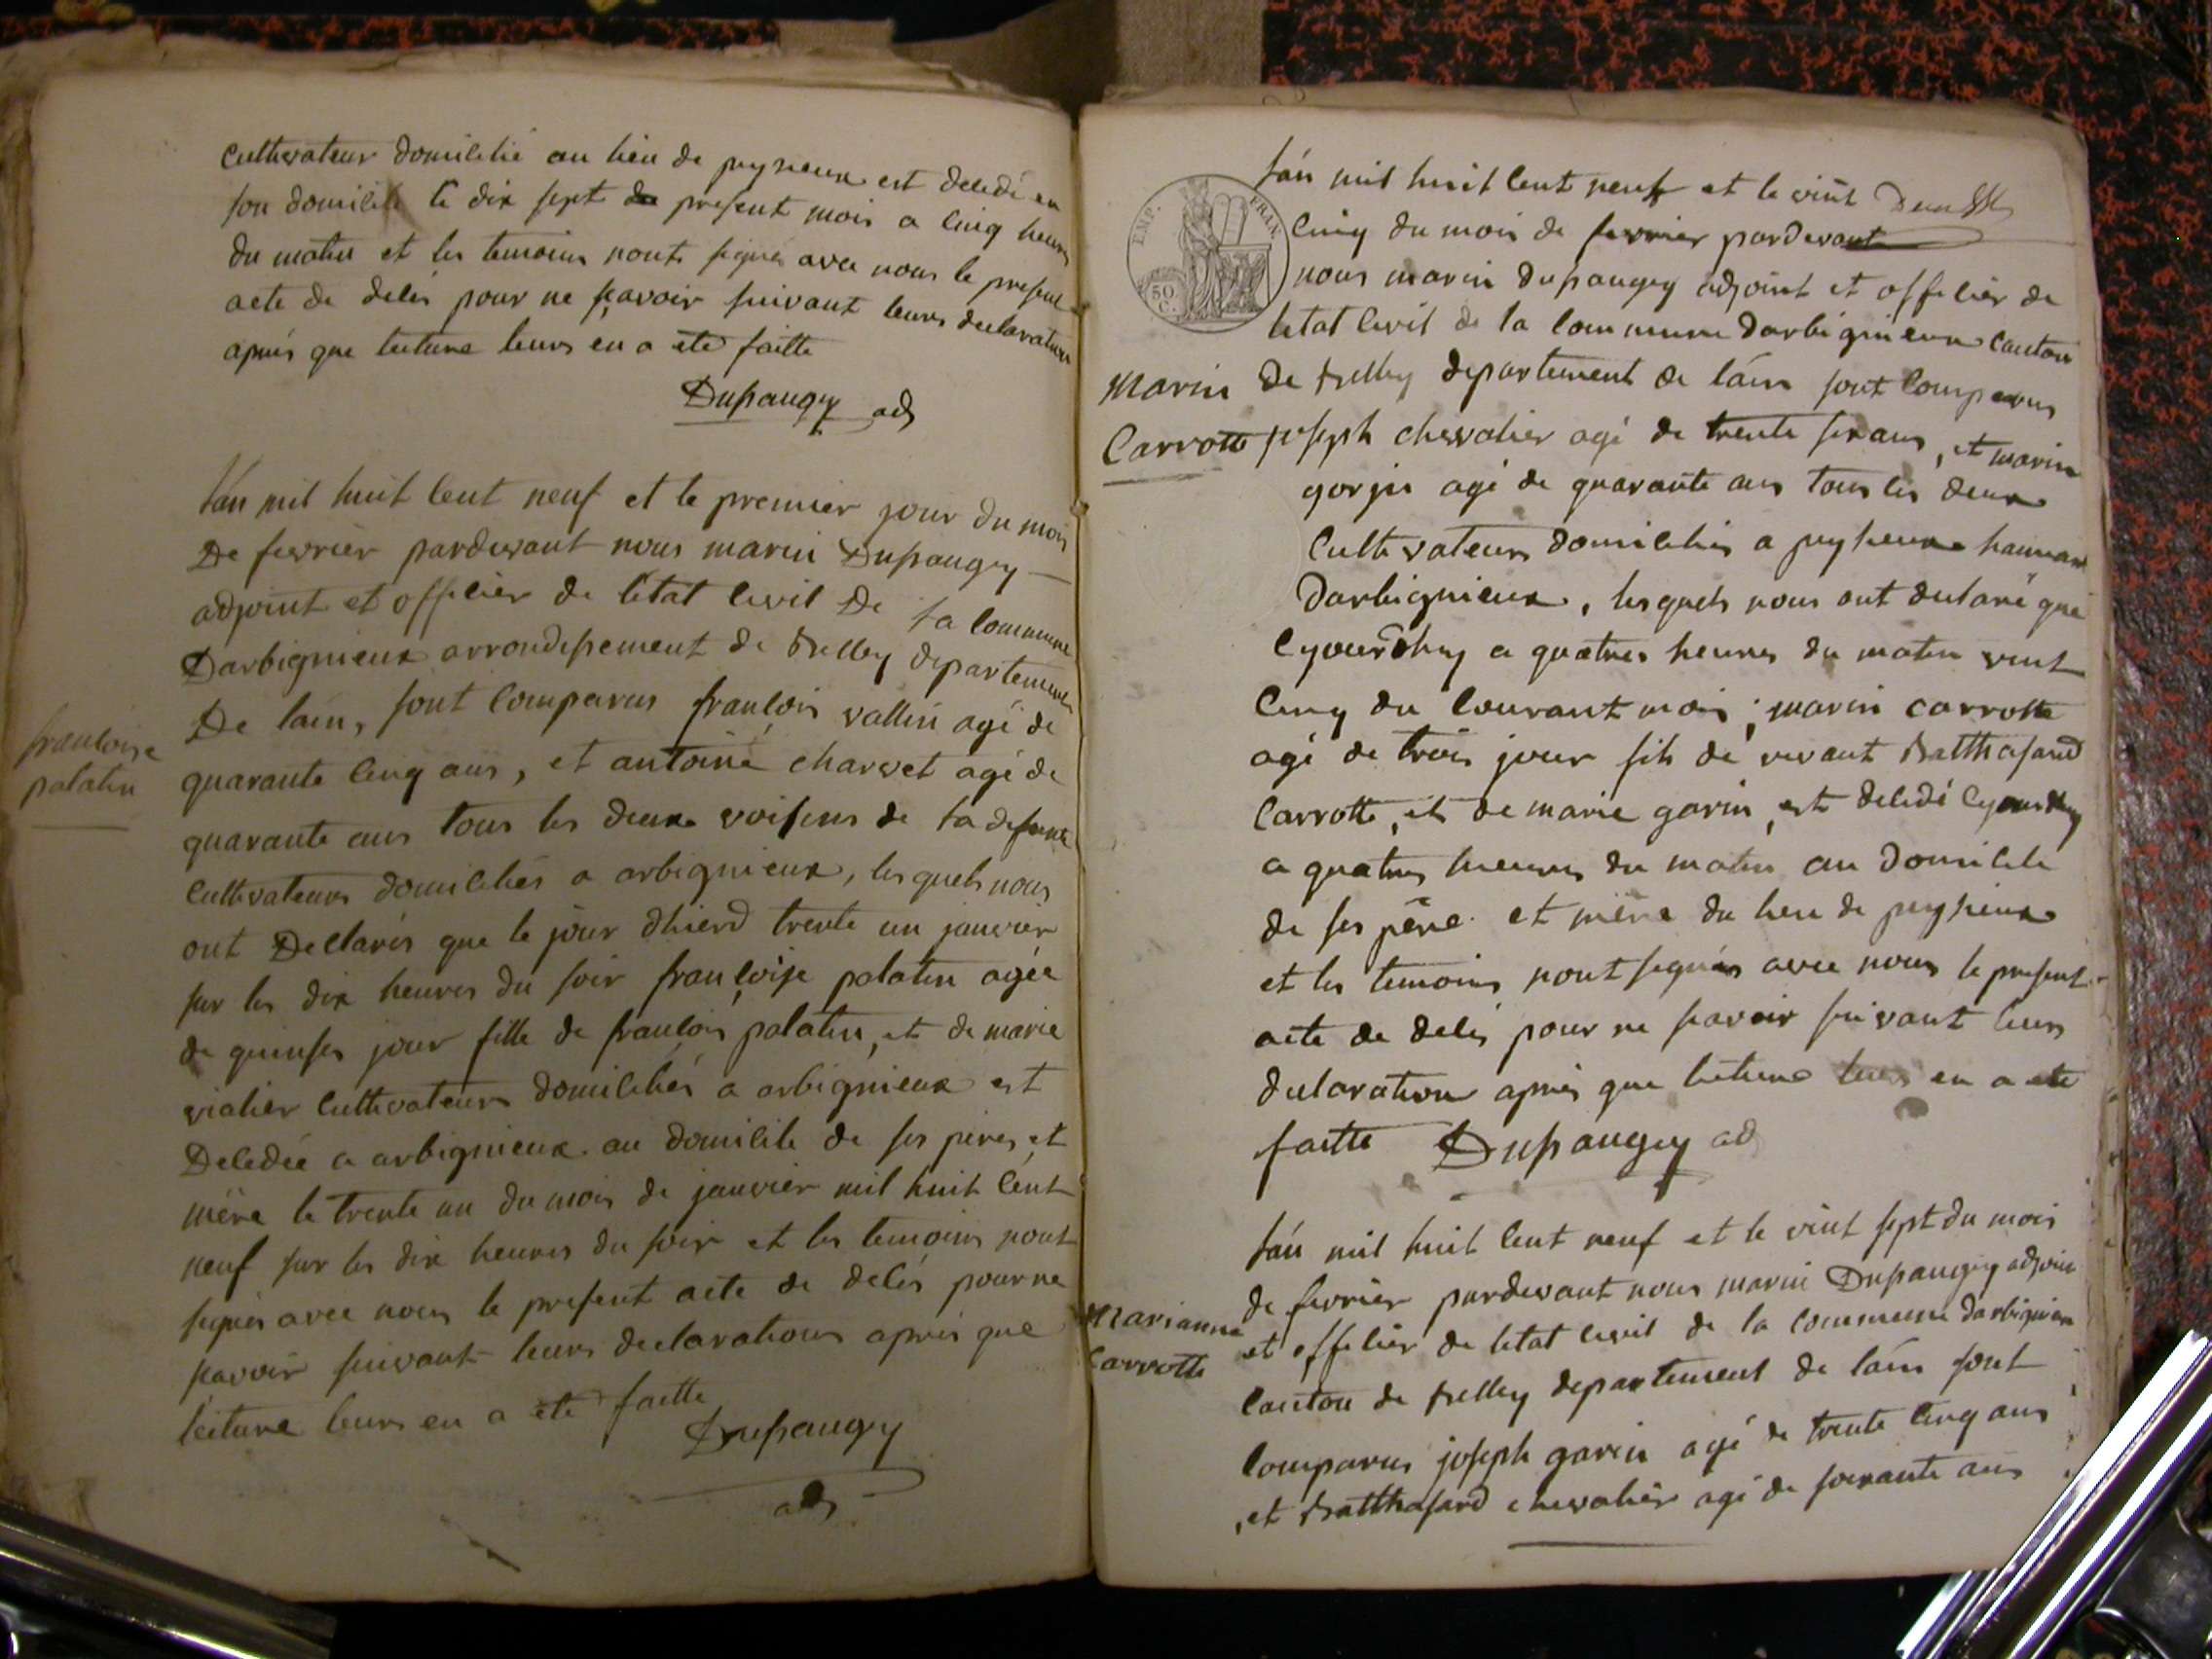 Cultivateur domicilié au lieu de puysieux est deledé en
son domicile le dix sept de present mois a cinq heures
du matin et les temoins nonts signés avec nous le present
acte de deles pour ne scavoir suivant leurs declaration
aprés que lecture leurs en a eté faitte
Dupaugey adj
L'án mil huit cent neuf et le premier jour du mois
De fevrier pardevant nous marin Dupaugey
adjoint et officier de l'état civil De la commune
Darbignieux arrondissement de Belley departement
De lain, sont comparus françois vallin agé de
françoise
palatin
quarante cinq ans, et antoine charvet agé de
quarante ans tous les deux voisins de la defunte
Cultivateurs domiciliés a arbignieux, les quels nous
ont Declarés que le jour dhierd trente un janvier
sur les dix heures du soir françoise palatin agée
de quinses jour fille de françois palatin, et de marie
vialier Cultivateurs domiciliés a arbignieux est
Deledée a arbignieux au domicile de ses pères et
mère le trente un du mois de janvier mil huit cent
neuf sur les dix heures du soir et les temoins nont
signés avec nous le present acte de delés pour ne
scavoir suivant leurs declarations après que
lecture leurs en a eté faitte
Dupaugey
adj
L'án mil huit cent neuf et le vint
cinq du mois de fevrier pardevant
nous marin dupaugey adjoint et officier de
letat civil de la commune darbignieux canton
Marin
Carrotte
De Belley departement de láin sont comparus
joseph chevalier agé de trente six ans, et marin
gorjus agé de quarante ans tous les deux
Cultivateurs domiciliés a puysieux hameau
Darbignieux, les quels nous ont declaré que
a quatres heures du matin vint
cinq du courant mois; marin carrotte
agé de trois jour fils de vivant Balthasard
Carrotte, et de marie garin, est deledé
a quatres heures du matin au domicile
de ses père et mère du lieu de puysieux
et les temoins nont signés avec nous le present
acte de delés pour ne scavoir suivant leurs
declaration après que lecture leurs en a eté
faitte Dupaugey adj
L'án mil huit cent neuf et le vint sept du mois
de fevrier pardevant nous marin Dupaugey adjoint
Marianne
Carrotte
et officier de letat civil de la commune darbignieux
canton de Belley departement de láin sont
comparus joseph garin agé de trente cinq ans
, et Balthasard chevalier agé de soixante ans
EMP. FRAN.
50
C.